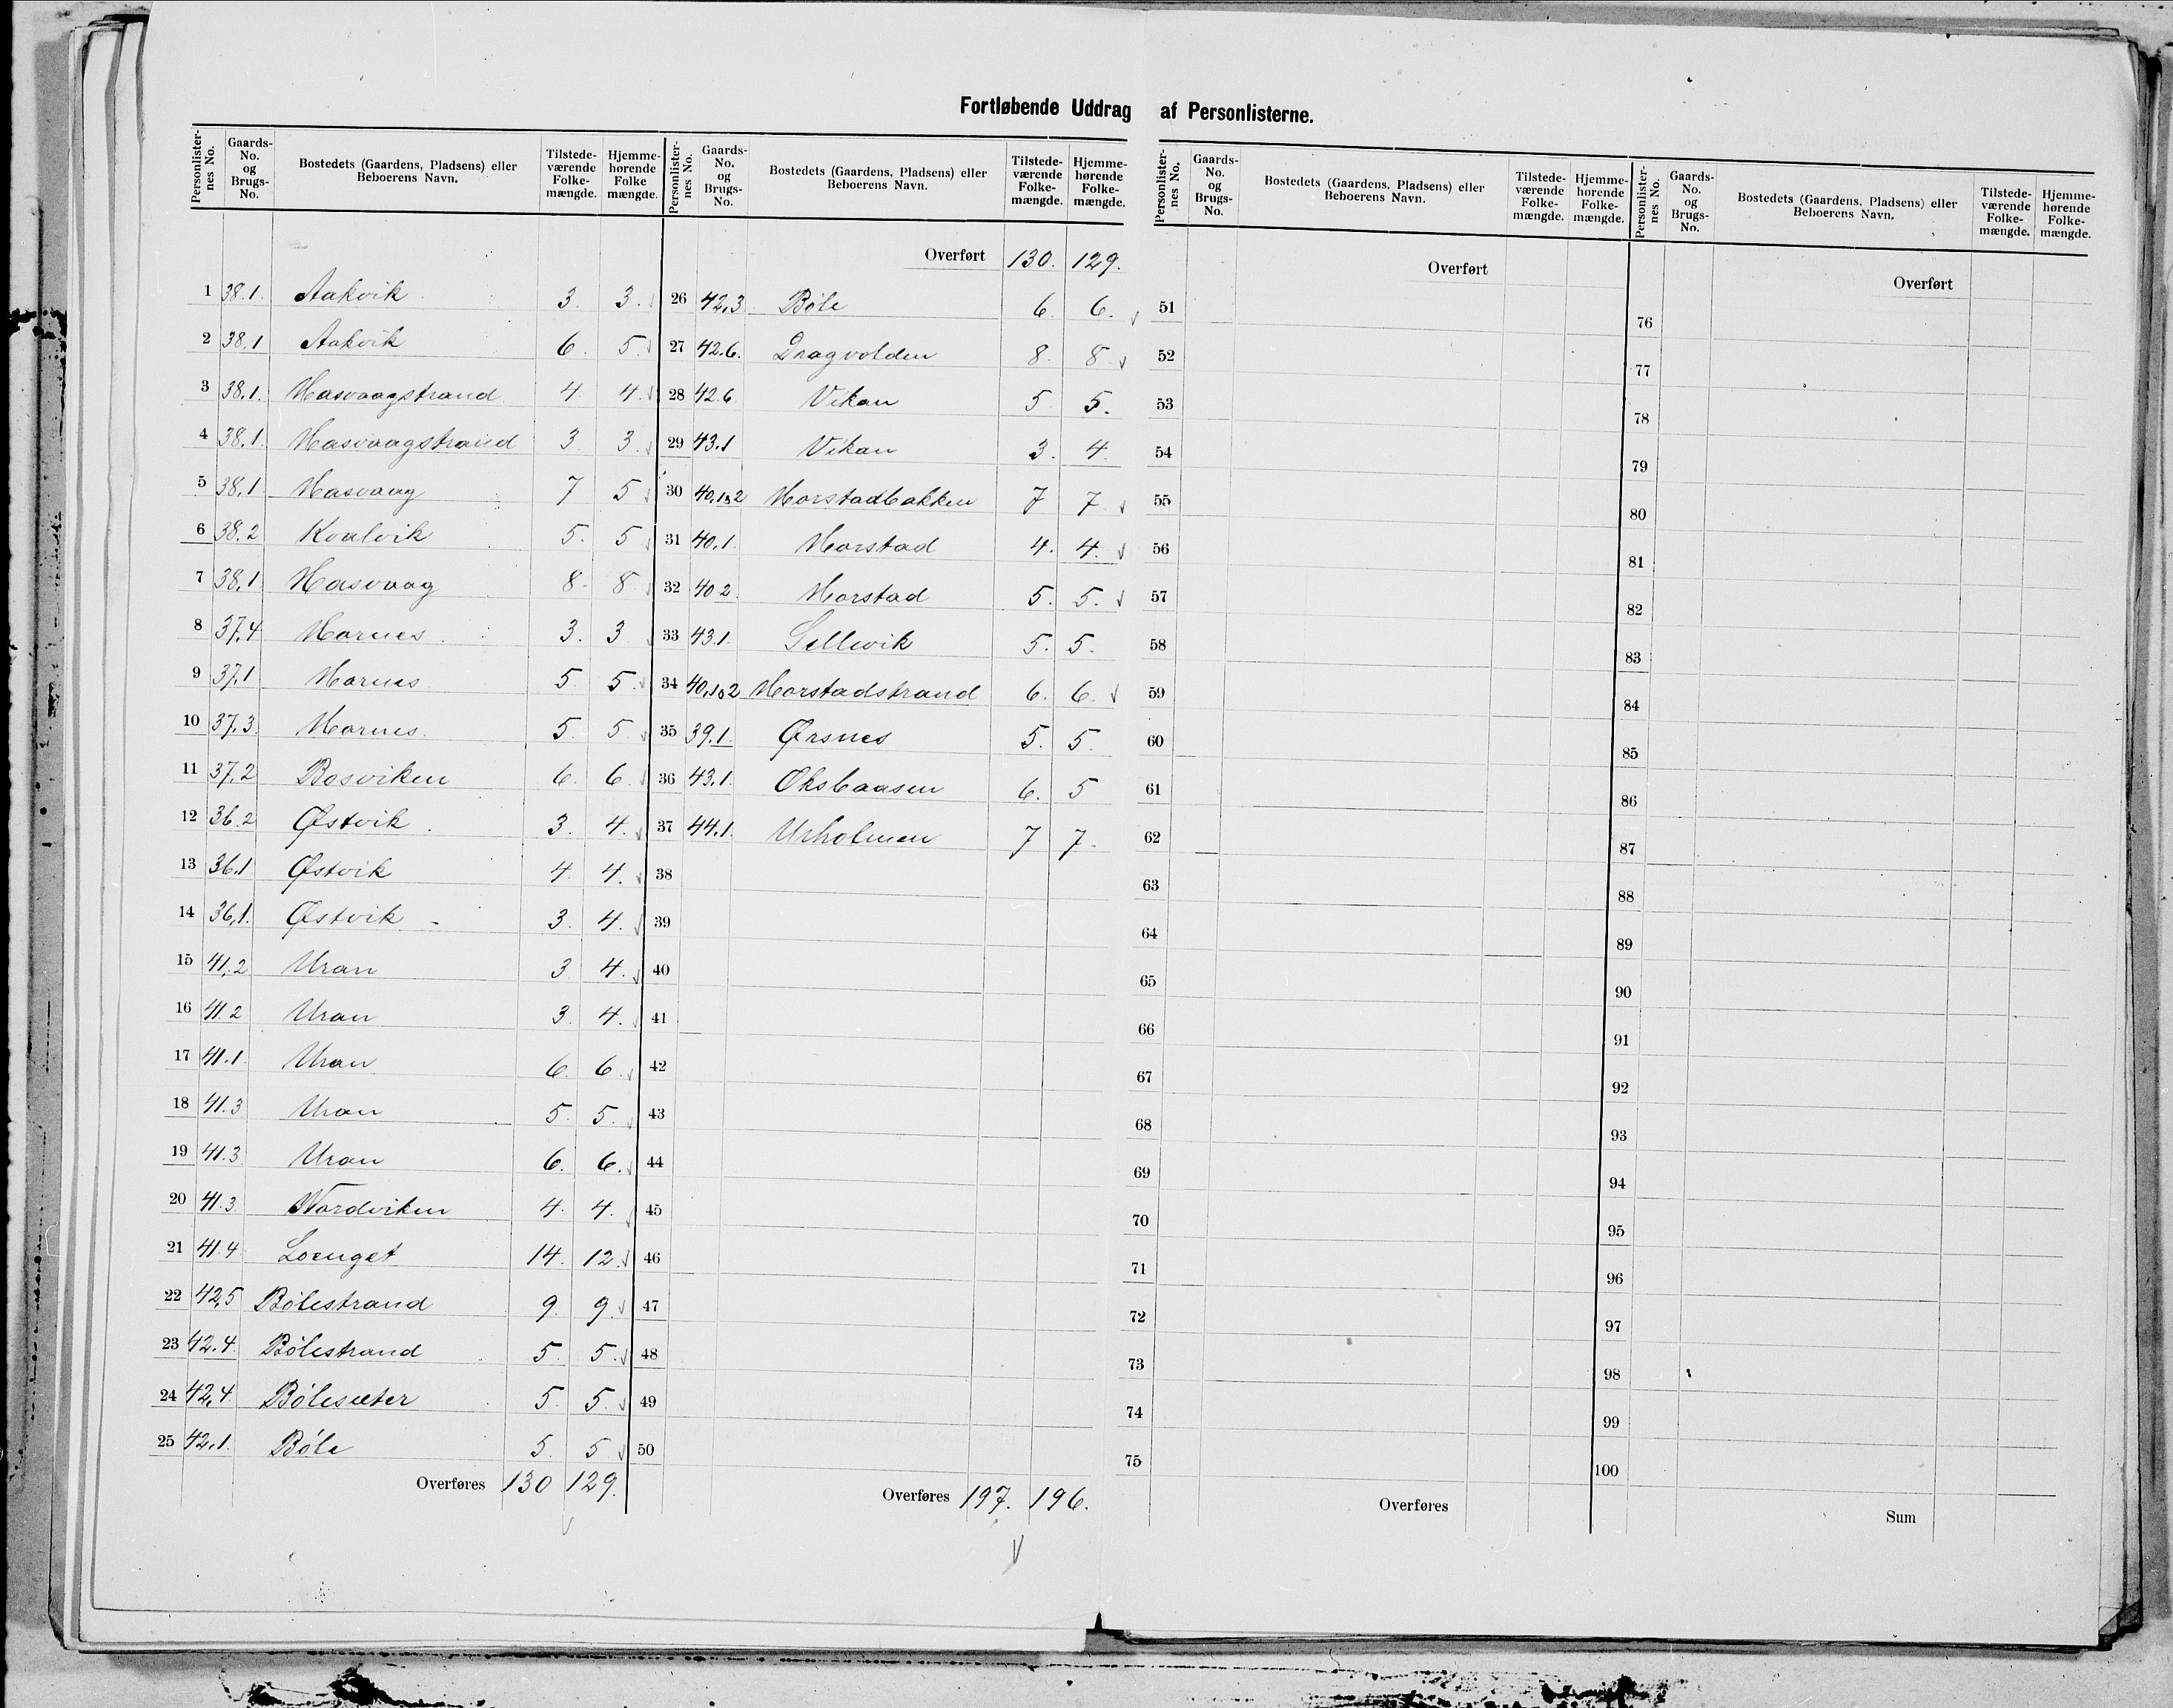 Fortløbende Uddrag af Personlisterne.
Personlister-nes No. | Gaards-No. og Brugs-No. | Bostedets (Gaardens, Pladsens) eller Beboerens Navn. | Tilstede-værende Folke-mængde. | Hjemme-hørende Folke mængde.
1 38.1. Aakvik 3. 3.
2 38.1 Aakvik 6. 5
3 38.1. Hasvaagstrand 4 4.
4 38.1. Hasvaagstrand 3 3.
5 38.1 Hasvaag 7 5
6 38.2 Kvalvik 5. 5
7 38.1 Hasvaag 8. 8
8 37.4 Hornes 3. 3
9 37.1 Hornes 5. 5.
10 37.3. Hornes. 5. 5
11 37.2 Bosviken 6. 6.
12 36.2 Østvik 3. 4.
13 36.1 Østvik 4. 4.
14 36.1. Østvik 3. 4.
15 41.2 Uran 3. 4.
16 41.2 Uran 3. 4.
17 41.1. Uran 6. 6.
18 41.3 Uran 5. 5.
19 41.3 Uran 6. 6.
20 41.3 Nordviken 4. 4.
21 41.4 Loenget 14. 12.
22 42.5 Bølestrand 9. 9.
23 42.4. Bølestrand 5. 5.
24 42.4. Bølesæter 5. 5.
25 42.1. Bøle 5. 5
Overføres 130 129.
Personlister-nes No. | Gaards-No. og Brugs-No. | Bostedets (Gaardens, Pladsens) eller Beboerens Navn. | Tilstede-værende Folke-mængde. | Hjemme-hørende Folke-mængde.
Overført 130. 129.
26 42.3 Bøle 6. 6.
27 42.6. Dragvolden 8. 8
28 42.6 Vikan 5 5.
29 43.1 Vikan 3. 4
30 40.1&2 Horstadbakken 7 7
31 40.1. Horstad 4. 4.
32 40 2. Horstad 5. 5.
33 43.1. Sellevik 5. 5.
34 40.1&2 Horstadstrand 6. 6.
35 39.1. Ørsnes 5. 5.
36 43.1. Oksbaasen 6. 5
37 44.1. Urholmen 7 7.
38
39
40
41
42
43
44
45
46
47
48
49
50
Overføres 197. 196.
Personlister-nes No. | Gaards-No. og Brugs-No. | Bostedets (Gaardens, Pladsens) eller Beboerens Navn. | Tilstede-værende Folke-mængde. | Hjemme-hørende Folke-mængde.
Overført
51
52
53
54
55
56
57
58
59
60
61
62
63
64
65
66
67
68
69
70
71
72
73
74
75
Overføres
Personlister-nes No. | Gaards-No. og Brugs-No. | Bostedets (Gaardens, Pladsens) eller Beboerens Navn. | Tilstede-værende Folke-mængde. | Hjemme-hørende Folke-mængde.
Overført
76
77
78
79
80
81
82
83
84
85
86
87
88
89
90
91
92
93
94
95
96
97
98
99
100
Sum